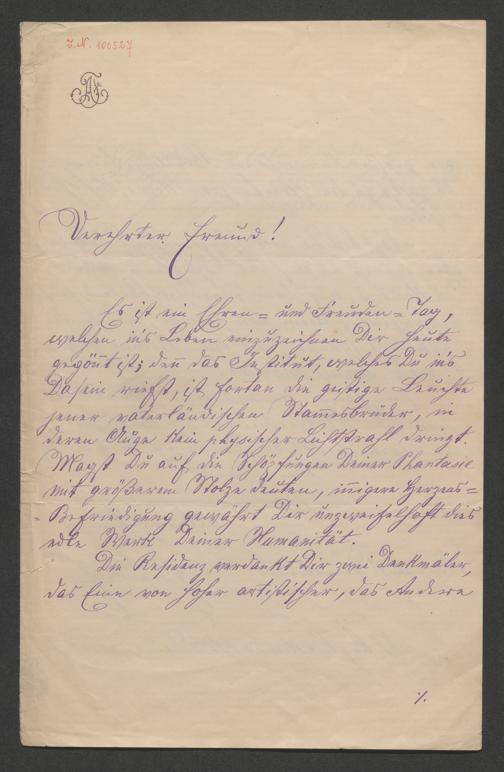 J.N. 100527
AF
Verehrter Freund!
Es ist ein Ehren= und Freuden=Tag,
welchen in's Leben einzuzeichnen Dir heute
gegönnt ist; denn das Institut, welches Du in's
Dasein riefst, ist fortan die geistige Leuchte
jener vaterländischen Stammesbrüder, in
deren Auge kein physischer Lichtstrahl dringt.
Magst Du auf die Schöpfungen Deiner Phantasie
mit größerem Stolze deuten, innigere Herzens=
Befriedigung gewährt Dir unzweifelhaft dies
edle Werk Deiner Humanität.
Die Residenz verdankt Dir zwei Denkmäler,
das Eine von hoher artistischer, das Andere
·/.